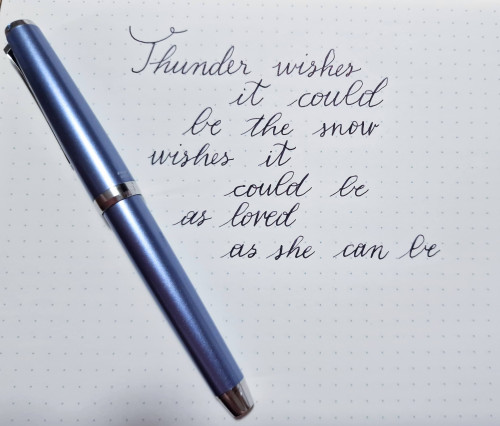 Thunder wishes
it could
be the snow
wishes it
could be
as loved
as she can be